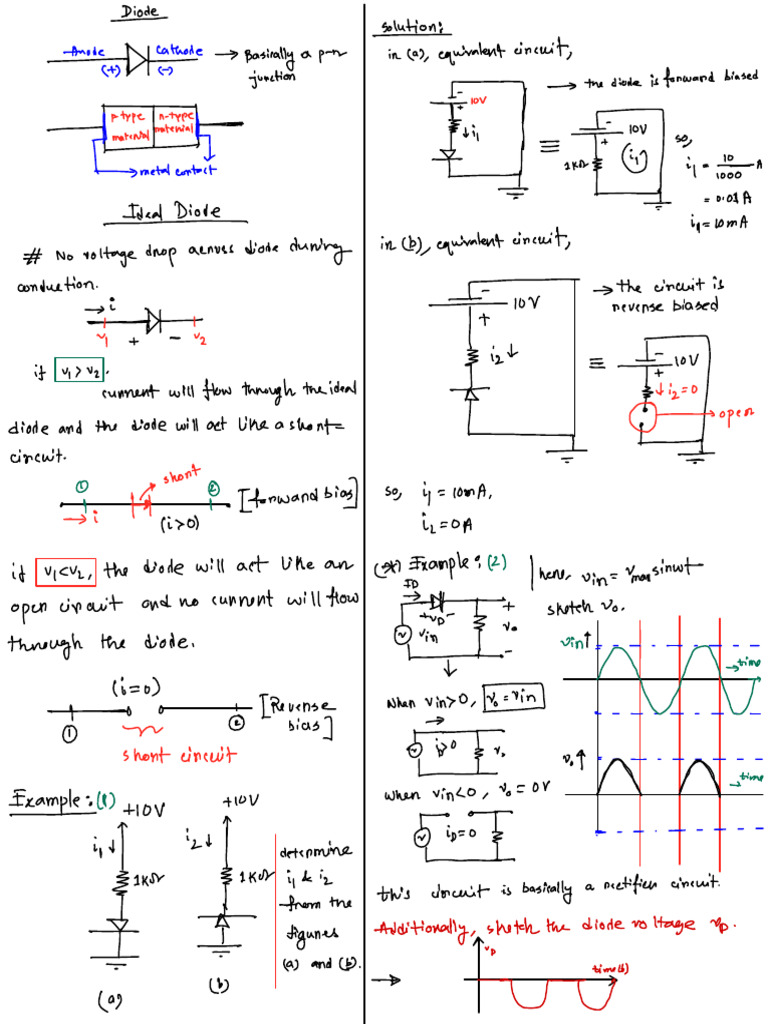 Diode
Anode
Cathode
(+)
(-)
→ Basically a p-n
junction
p-type
material
n-type
material
→ metal contact
Ideal Diode
# No voltage drop across diode during
conduction.
→ i
V1 + - V2
if V1 > V2,
current will flow through the ideal
diode and the diode will act like a short-
circuit.
① short ②
→ i (i>0) [forward bias]
if V1 < V2, the diode will act like an
open circuit and no current will flow
through the diode.
(i=0)
① ② [Reverse
bias]
short circuit
Example: (1)
+10V +10V
i1 ↓ i2 ↓
1KΩ 1KΩ
(a) (b)
determine
i1 & i2
from the
figures
(a) and (b).
solution:
in (a), equivalent circuit,
→ the diode is forward biased
-
+ 10V
↓ i1
≡
-
+ 10V
1KΩ i1
so,
i1 = 10/1000 A
= 0.01 A
i1 = 10mA
in (b), equivalent circuit,
-
+ 10V
i2 ↓
→ the circuit is
reverse biased
≡
-
+ 10V
↓ i2 = 0
→ open
so, i1 = 10mA,
i2 = 0A
(*) Example: (2)
here, vin = vmax sinωt
sketch vo.
ID
→
+ vD -
vin
+
vo
-
vin ↑
→ time
when vin>0, vo = vin
iD>0 vo
vo ↑
→ time
when vin<0, vo = 0V
iD = 0
this circuit is basically a rectifier circuit.
Additionally, sketch the diode voltage vD.
→ vD
time(s)